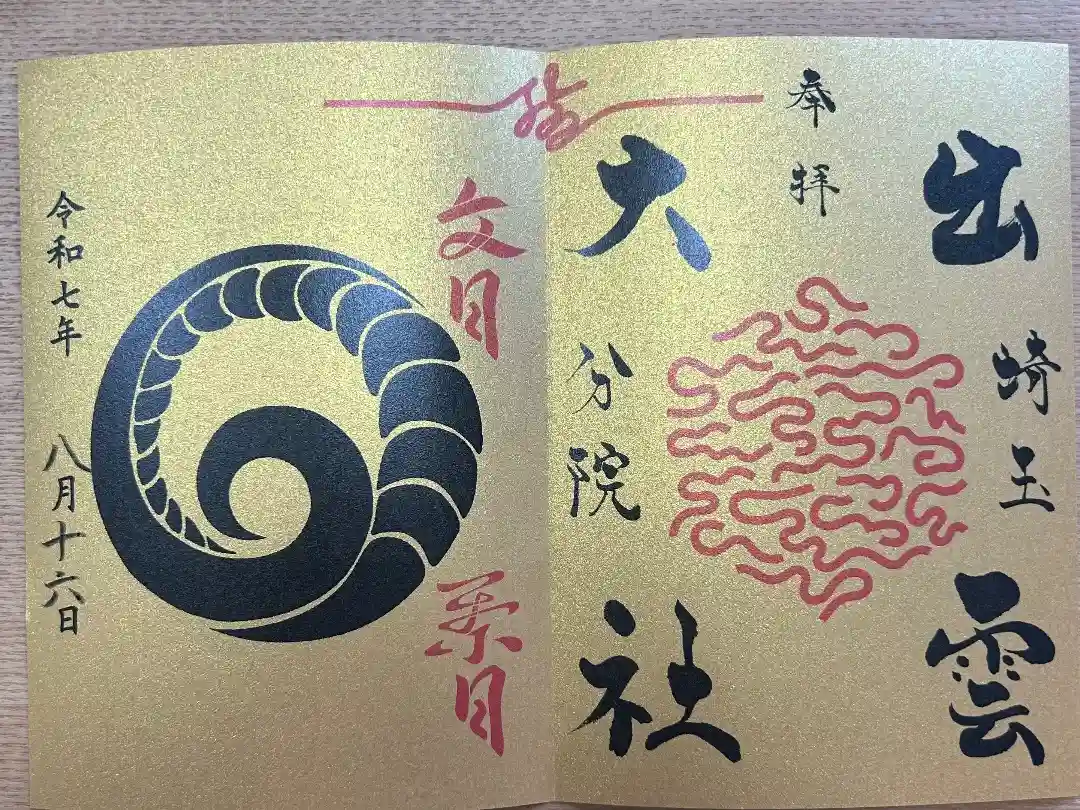 奉拝
出雲
埼玉
大社
分院
文月
葉月
令和七年 八月十六日